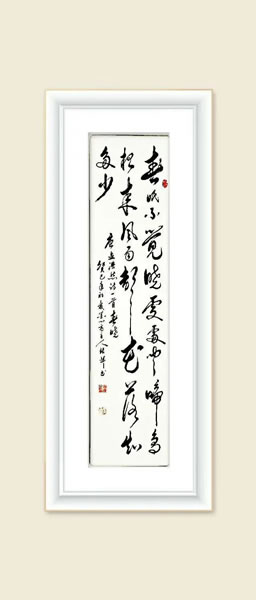 春眠不觉晓处处闻啼鸟
夜来风雨声花落知
多少
唐孟浩然诗一首春晓
癸巳年初夏